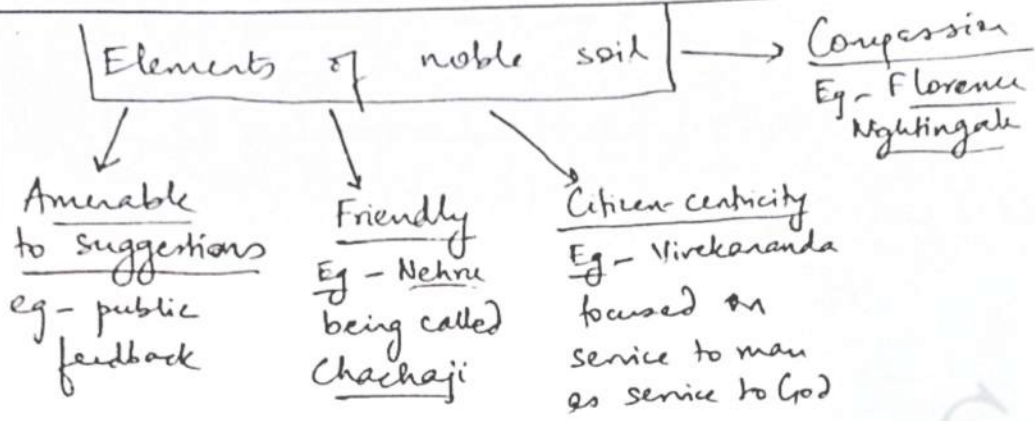 Elements of noble soil
Compassion
Eg - Florence
Nightingale
Amenable
to suggestions
eg - public
feedback
Friendly
Eg - Nehru
being called
Chachaji
Citizen-centricity
Eg - Vivekananda
focused on
service to man
as service to God